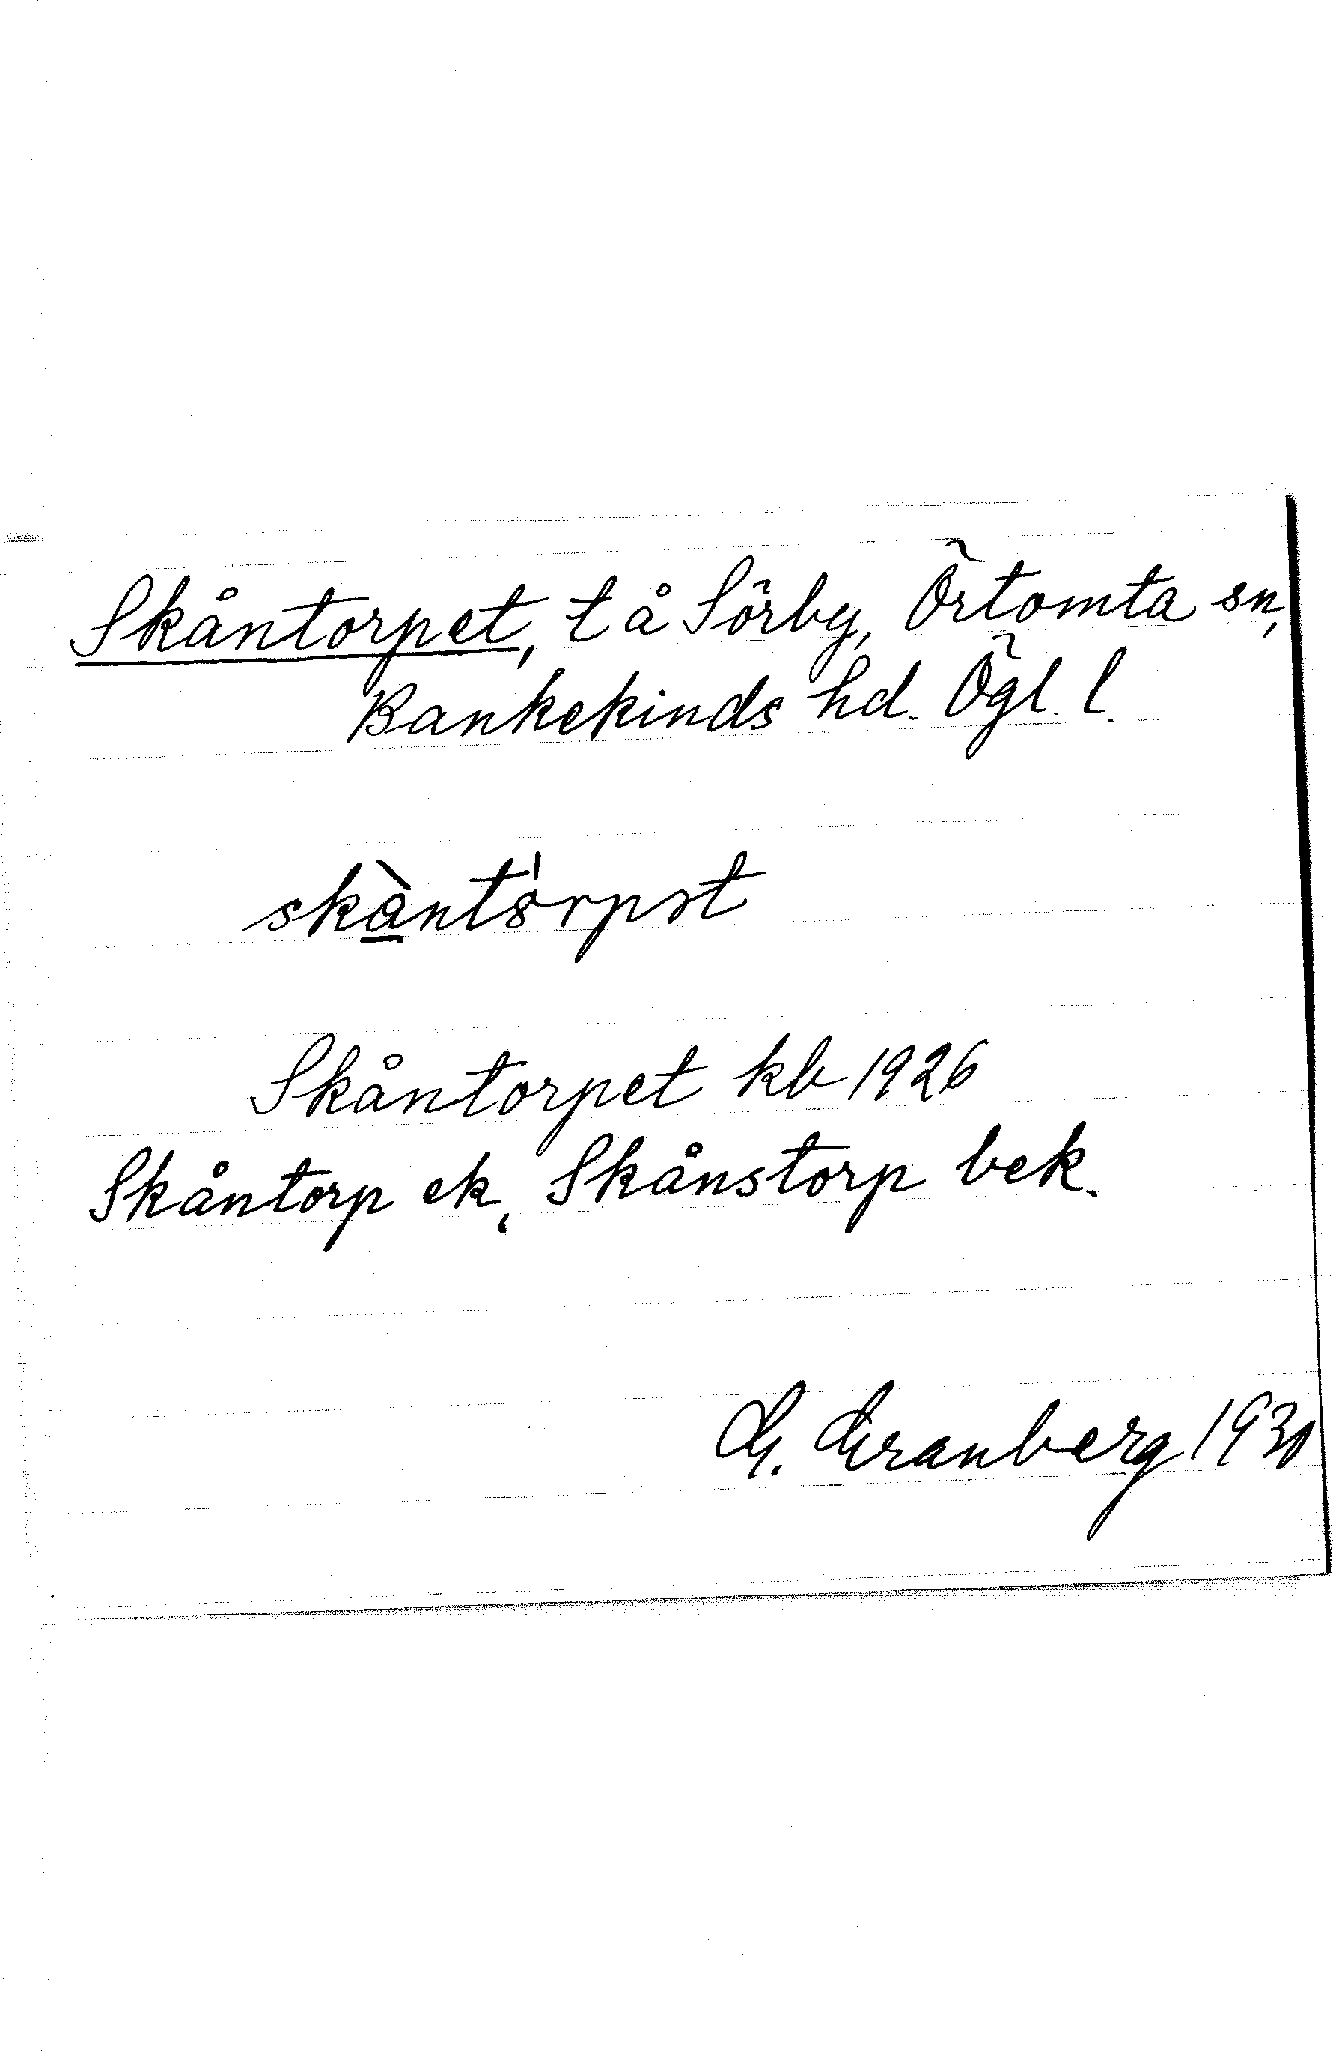 Skåntorpet, t å Sörby, Örtomta sn,
Bankekinds hd. Ögl. l.
Skåntorpet kb 1926
Skåntorp ek, Skånstorp bek.
G. Granberg 1930